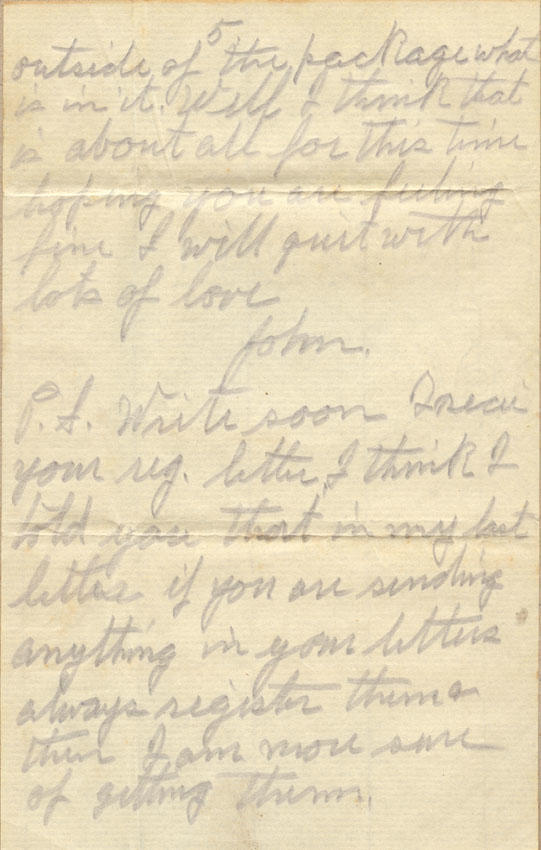 5
outside of the package what
is in it. Well I think that
is about all for this time
hoping you are feeling
fine I will quit with
lots of love
John.
P.S. Write soon I recei
your reg. letter, I think I
told you that in my last
letter if you are sending
anything in your letters
always register them
then I am more sure
of getting them.